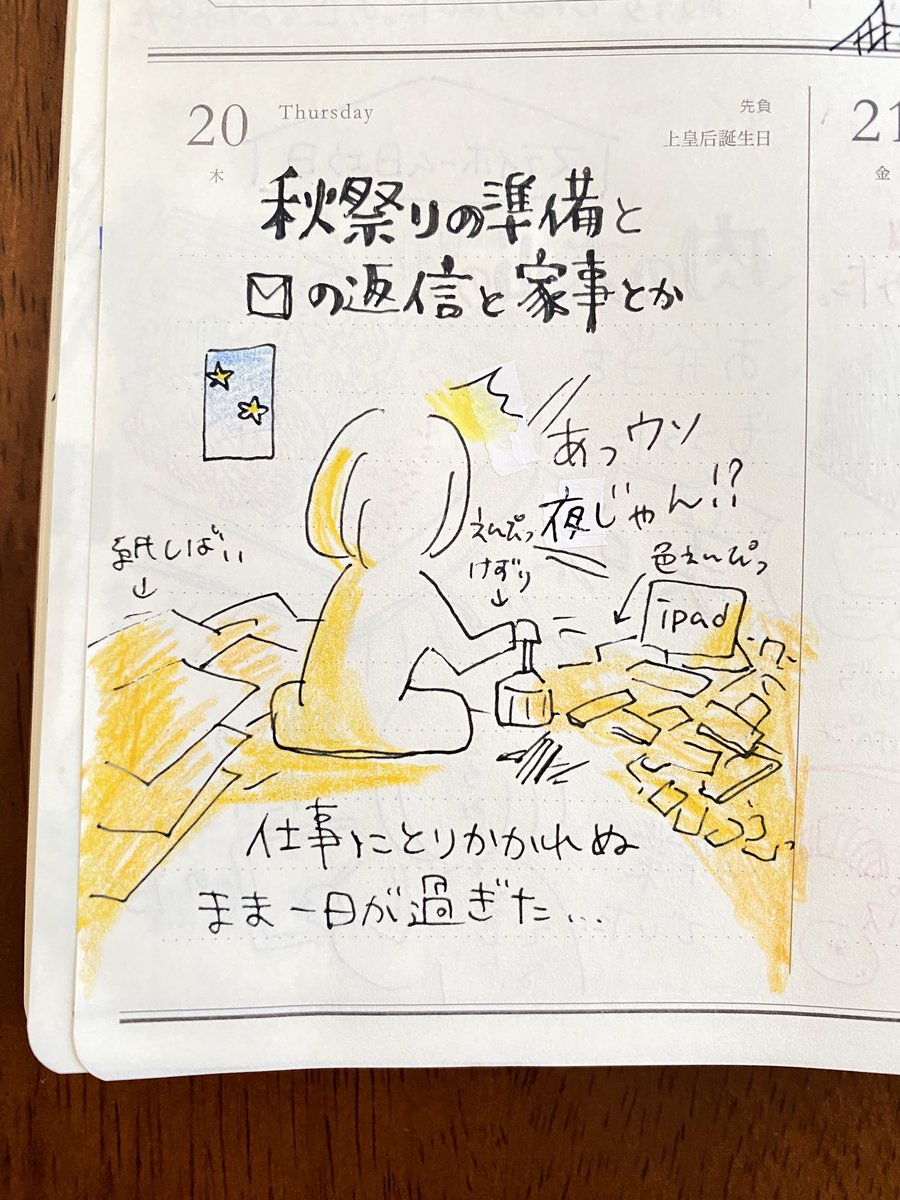 20 Thursday 先負
木 上皇后誕生日
秋祭りの準備と
の返信と家事とか
あっウソ
夜じゃん!?
えんぴつ
けずり
紙しばい
色えんぴつ
ipad
仕事にとりかかれぬ
まま一日が過ぎた…
21
金